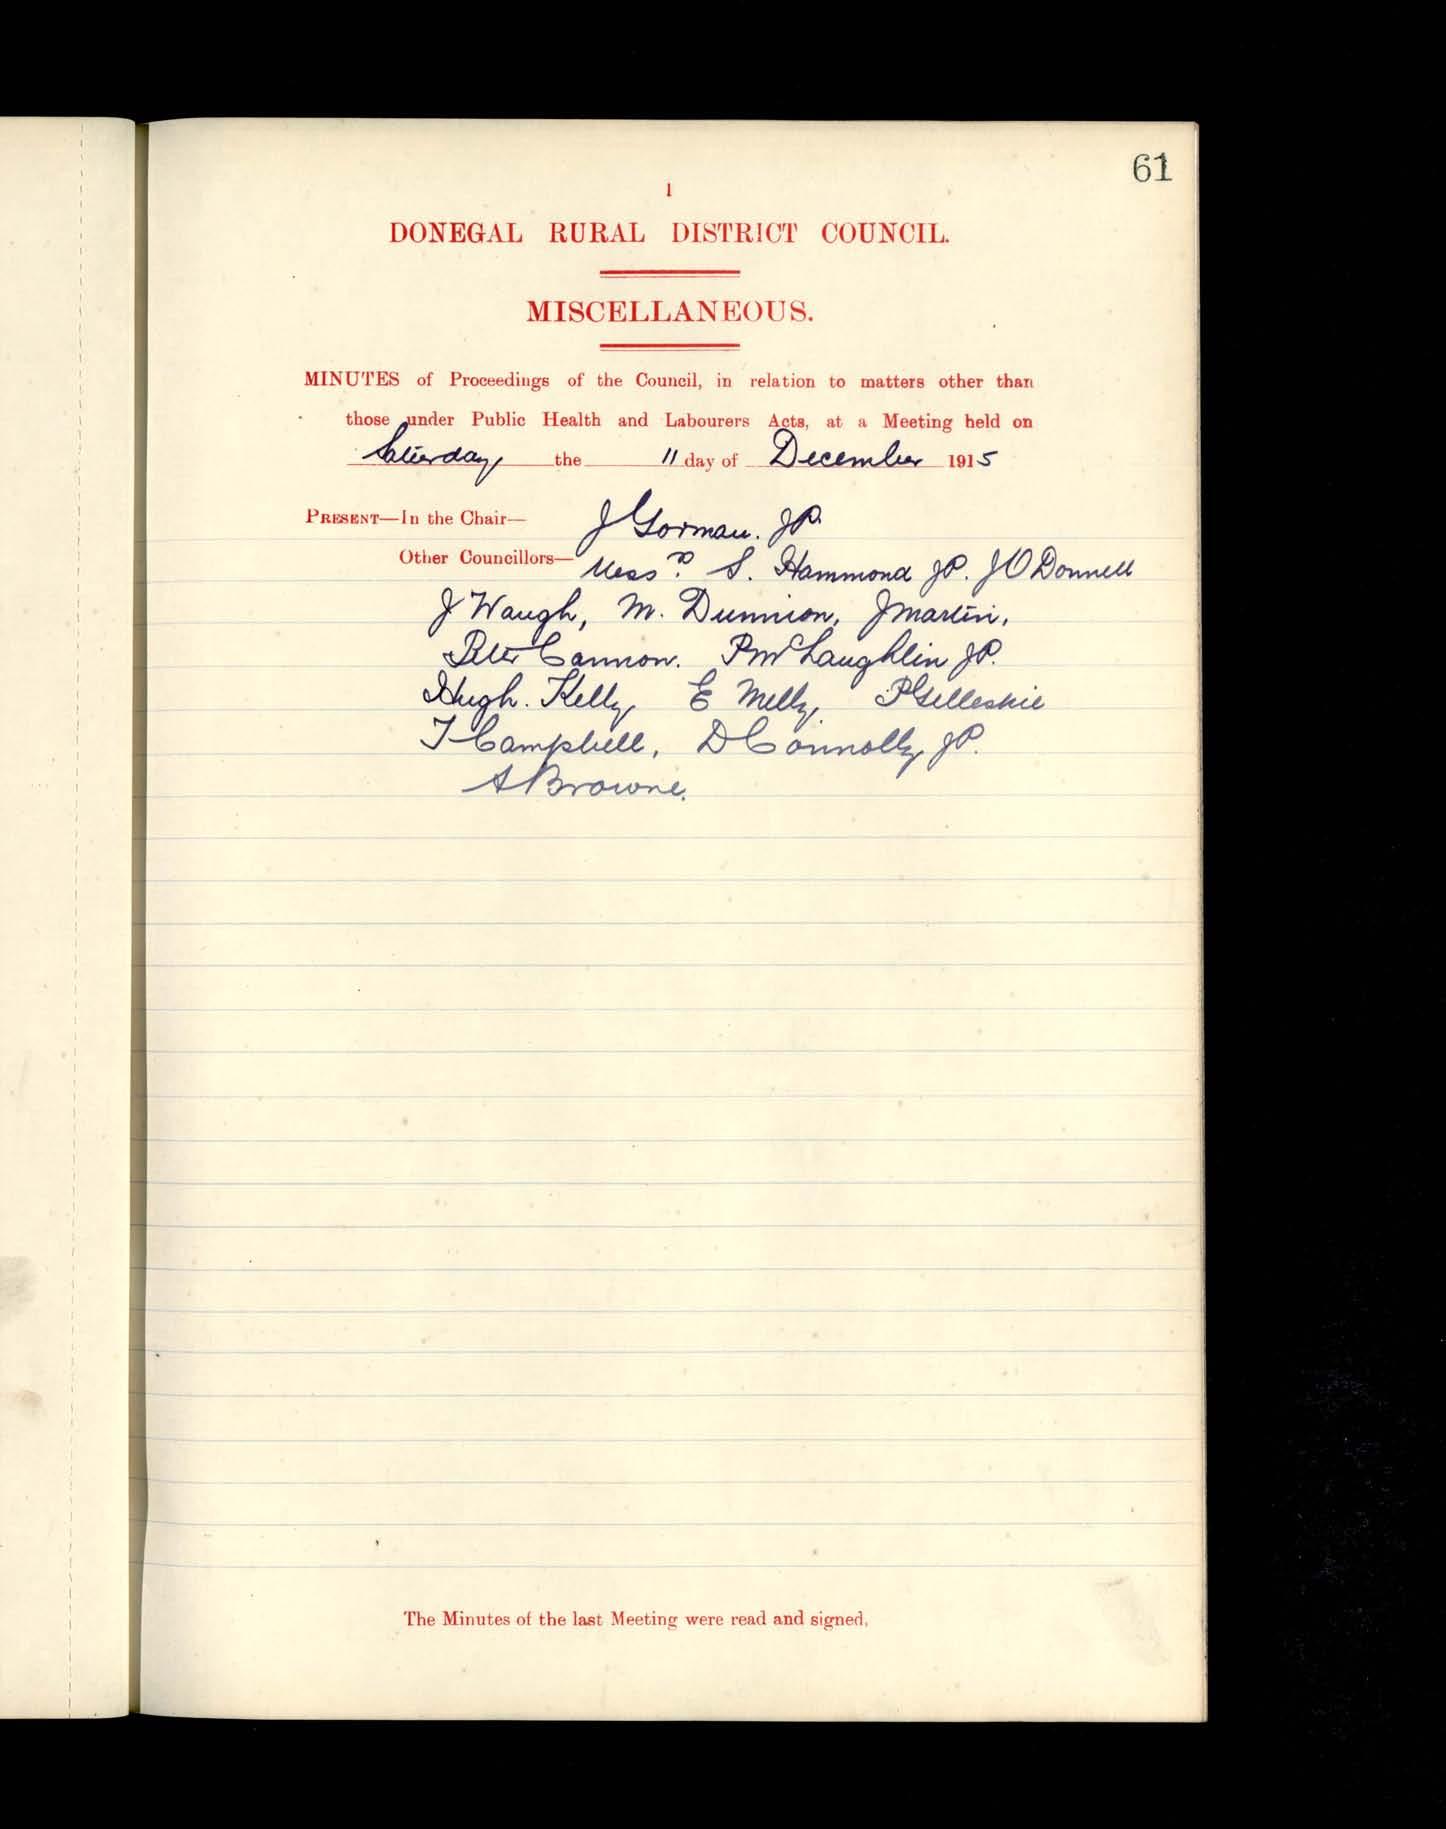 61
1
DONEGAL RURAL DISTRICT COUNCIL.
MISCELLANEOUS.
MINUTES of Proceedings of the Council, in relation to matters other than
those under Public Health and Labourers Acts, at a Meeting held on
Saturday the 11 day of December 1915
PRESENT—In the Chair— J Gorman. JP.
Other Councillors— Messrs. S. Hammond JP. J O Donnell
J Waugh, M. Dunnion, J Martin,
Peter Cannon. P McLaughlin JP.
Hugh. Kelly E Melly, P Gilleskie
T Campbell, D Connolly JP.
A Browne.
The Minutes of the last Meeting were read and signed.